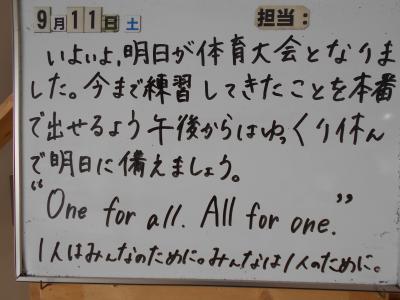 9月11日土 担当:
いよいよ,明日が体育大会となりま
した。今まで練習してきたことを本番
で出せるよう午後からはゆっくり休ん
で明日に備えましょう。
“One for all. All for one.”
1人はみんなのために。みんなは1人のために。